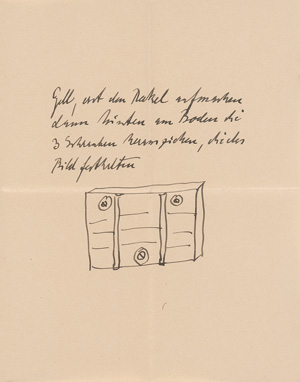 den Deckel aufmachen
dann hinten am Boden die
3 Schrauben herausziehen, die das
Bild festhalten